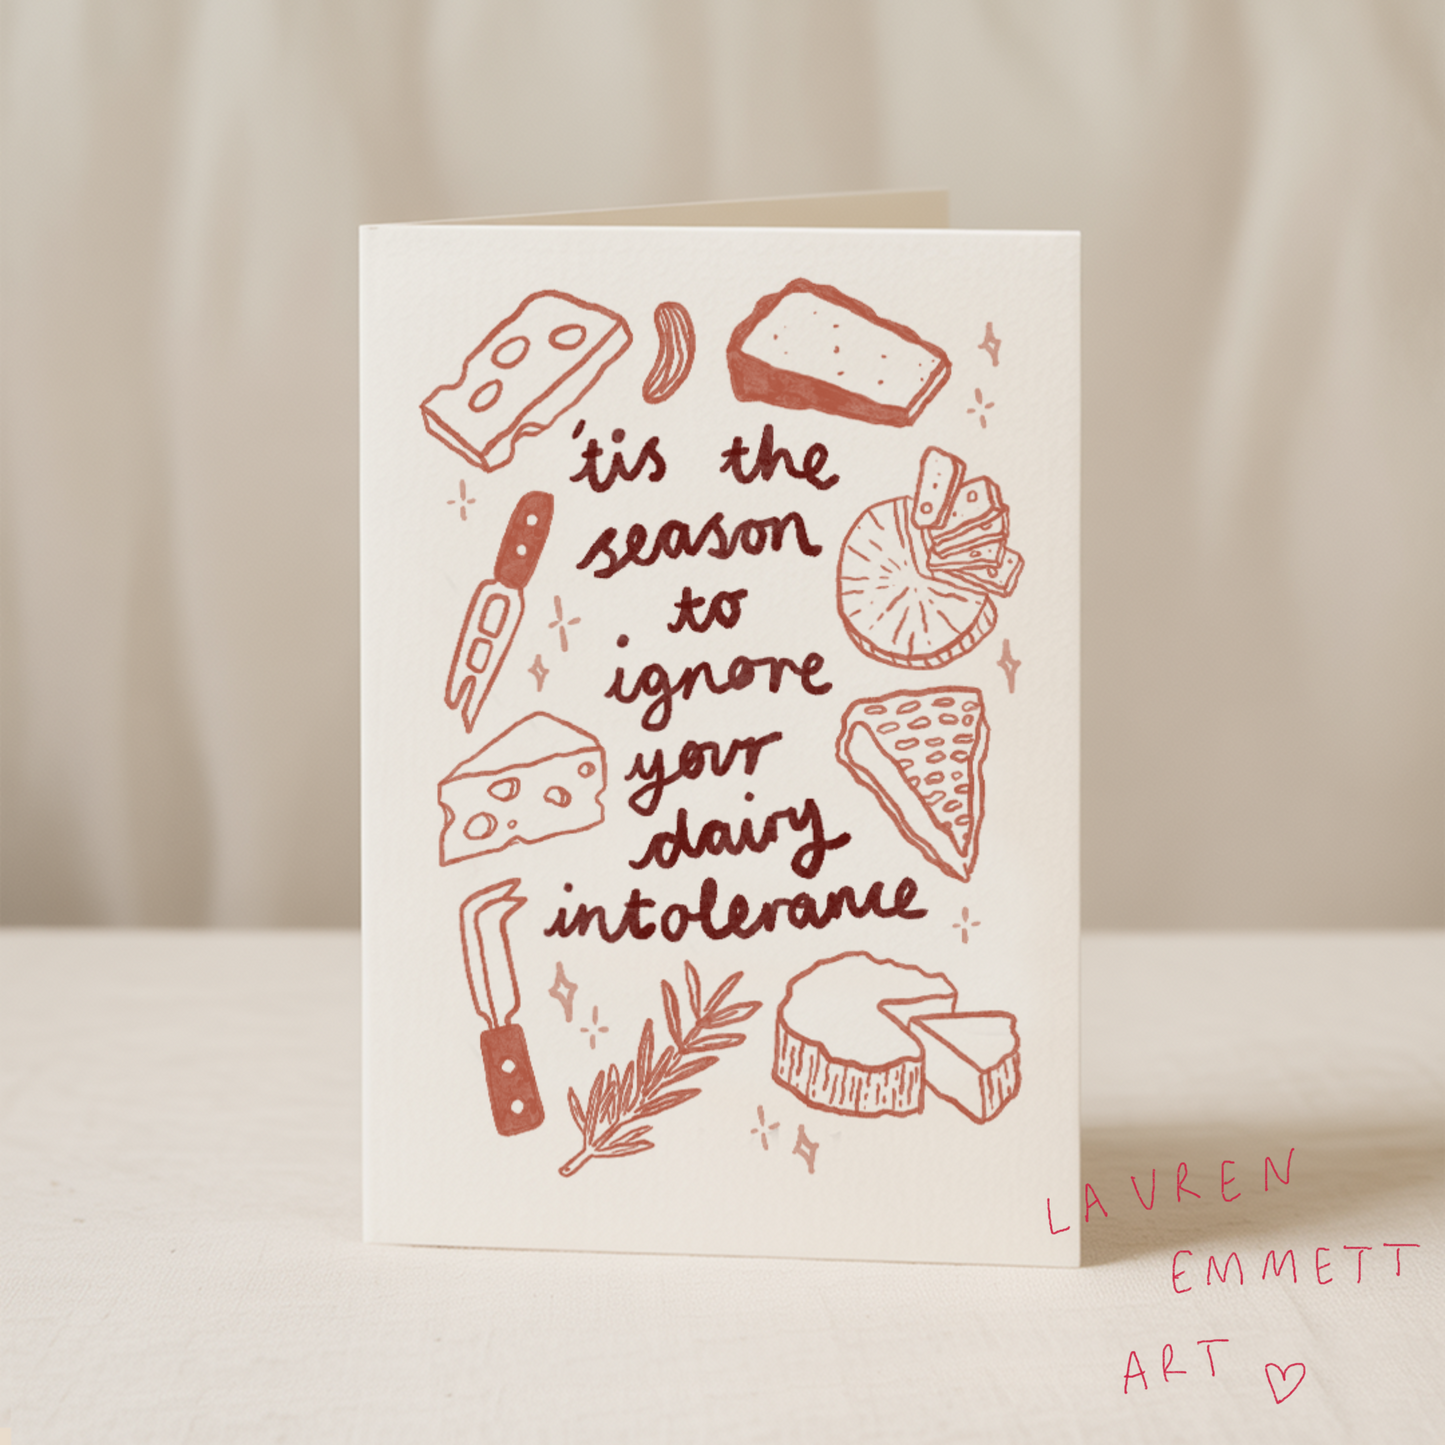 'tis the
season
to
ignore
your
dairy
intolerance
LAUREN
EMMETT
ART